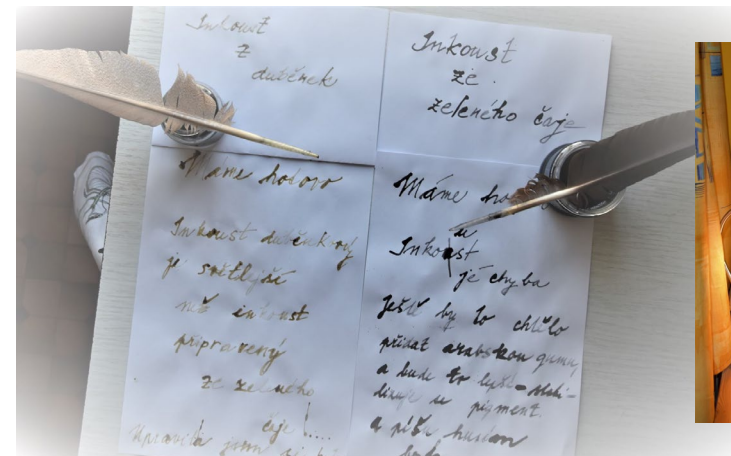 Inkoust
z
duběnek
Máme hotovo
Inkoust duběnkový
je světlejší
než inkoust
připravený
ze zeleného
čaje!....
Upravila jsem si
Inkoust
ze
zeleného čaje
Máme
Inkoust
je chyba
Ještě by to chtělo
přidat arabskou gumu,
a bude to lepší = stabi-
lizuje se pigment.
a píšu husím